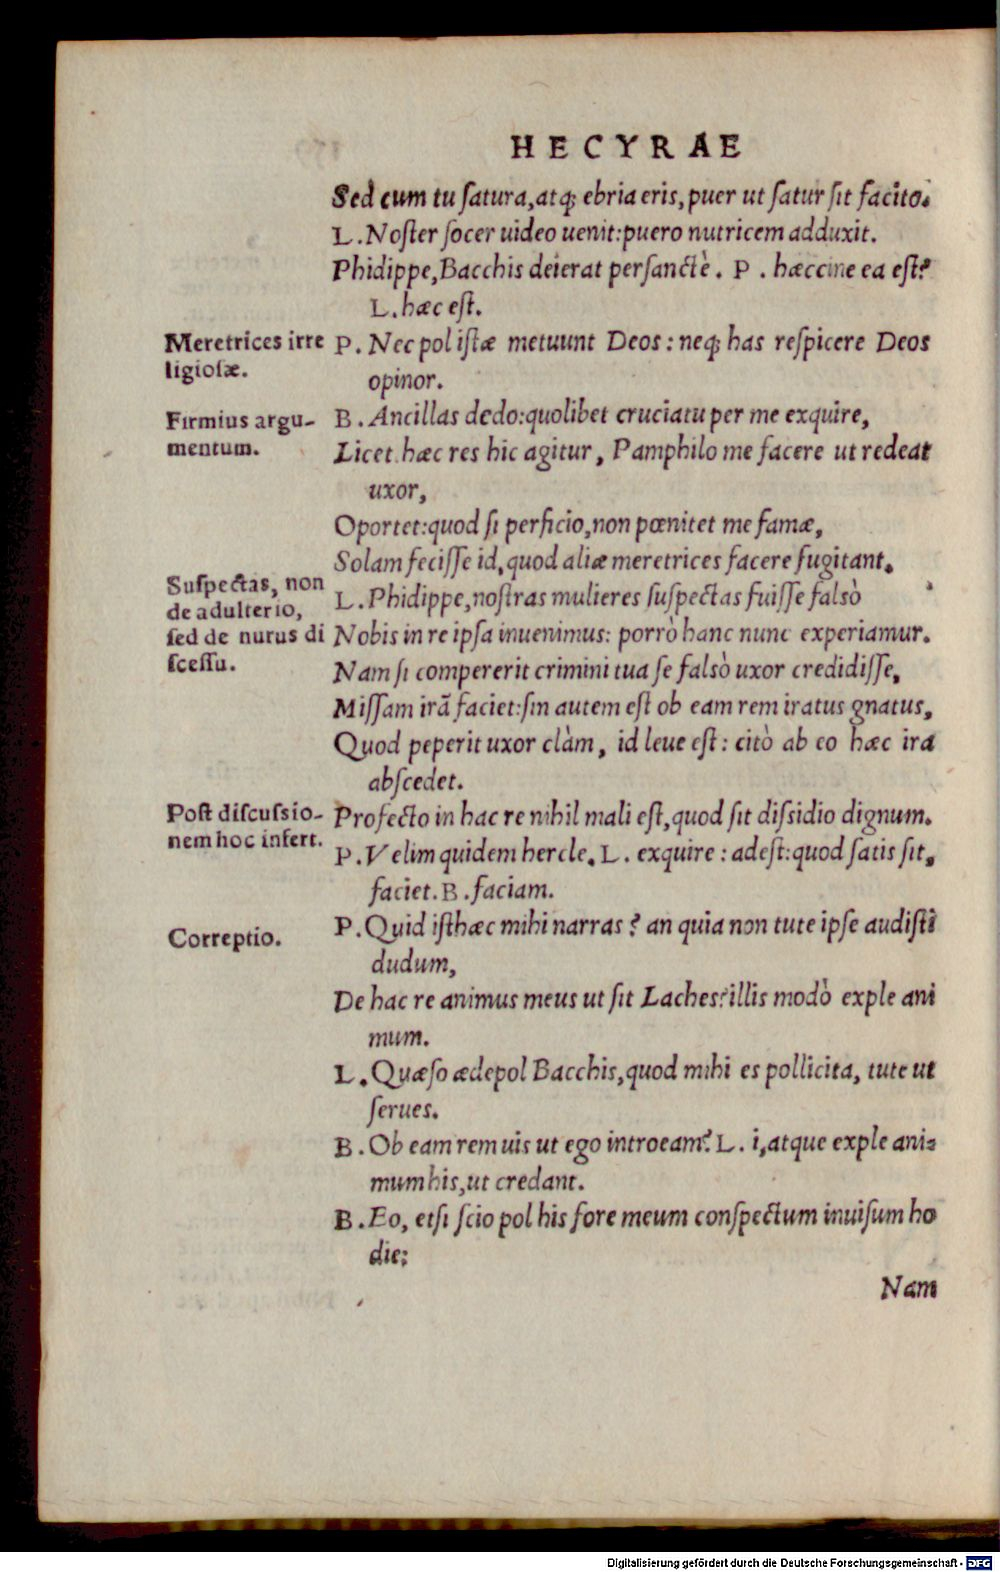 HECYRAE
Sed cum tu ſatura, atq; ebria eris, puer ut ſatur ſit facito.
L. Noſter ſocer uideo uenit: puero nutricem adduxit.
Phidippe, Bacchis deierat perſanctè. P. hæccine ea eſt?
L. hæc eſt.
Meretrices irre
ligioſæ.
P. Nec pol iſtæ metuunt Deos: neq; has reſpicere Deos
opinor.
Firmius argu-
mentum.
B. Ancillas dedo: quolibet cruciatu per me exquire,
Licet hæc res hic agitur, Pamphilo me facere ut redeat
uxor,
Oportet: quod ſi perficio, non pœnitet me famæ,
Solam feciſſe id, quod aliæ meretrices facere fugitant.
Suſpectas, non
de adulterio,
ſed de nurus di
ſceſſu.
L. Phidippe, noſtras mulieres ſuſpectas fuiſſe falsò
Nobis in re ipſa inuenimus: porrò hanc nunc experiamur.
Nam ſi compererit crimini tua ſe falsò uxor credidiſſe,
Miſſam irã faciet: ſin autem eſt ob eam rem iratus gnatus,
Quod peperit uxor clàm, id leue eſt: citò ab eo hæc ira
abſcedet.
Poſt diſcuſsio-
nem hoc infert.
Profecto in hac re nihil mali eſt, quod ſit diſsidio dignum.
P. Velim quidem hercle. L. exquire: adeſt: quod ſatis ſit,
faciet. B. faciam.
Correptio.
P. Quid iſthæc mihi narras? an quia non tute ipſe audiſti
dudum,
De hac re animus meus ut ſit Laches? illis modò exple ani
mum.
L. Quæſo ædepol Bacchis, quod mihi es pollicita, tute ut
ſerues.
B. Ob eam rem uis ut ego introeam? L. i, atque exple ani-
mum his, ut credant.
B. Eo, etſi ſcio pol his fore meum conſpectum inuiſum ho
die:
Nam
Digitalisierung gefördert durch die Deutsche Forschungsgemeinschaft - DFG